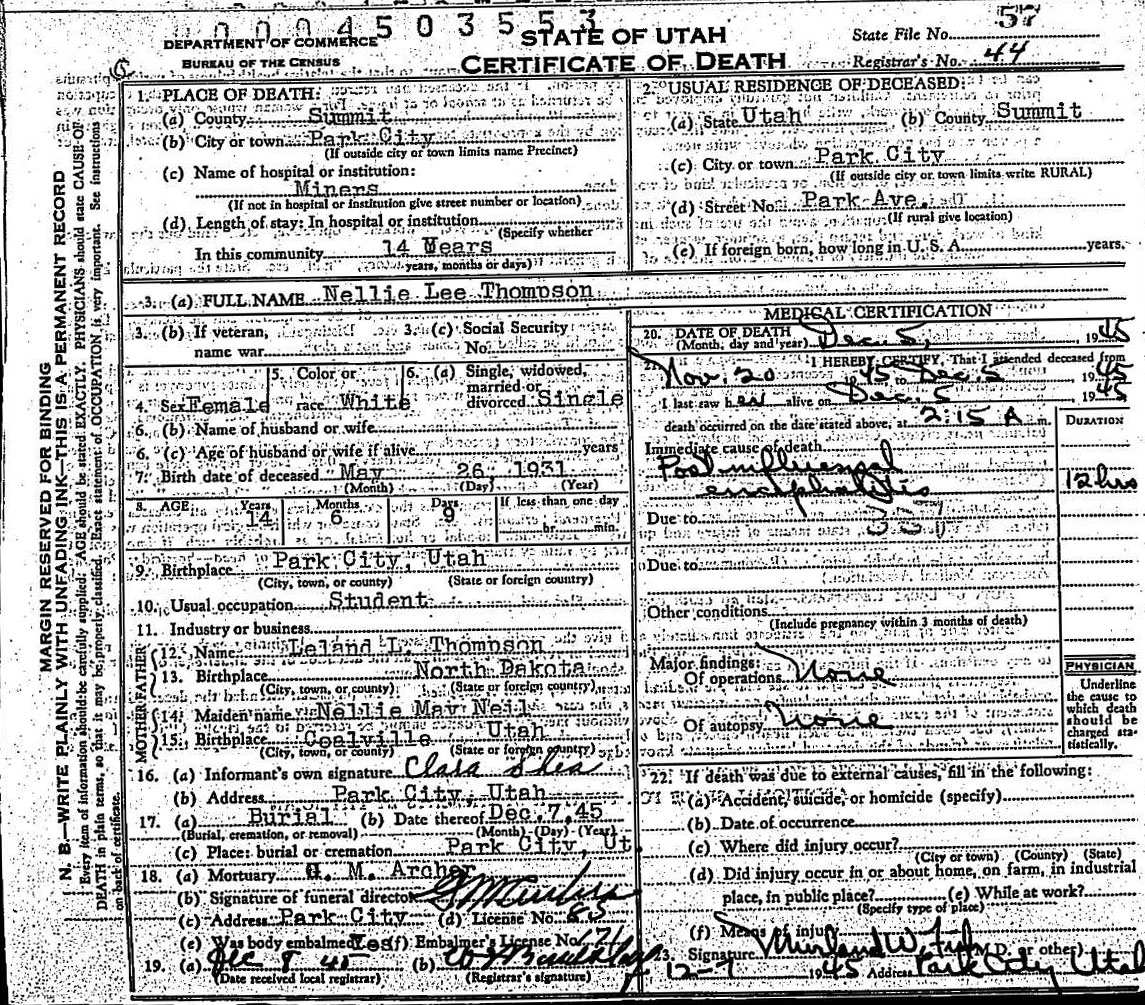 0 0 0 0 4 5 0 3 5 5 3
DEPARTMENT OF COMMERCE
BUREAU OF THE CENSUS
STATE OF UTAH
CERTIFICATE OF DEATH
State File No. 57
Registrar's No. 44
MARGIN RESERVED FOR BINDING
N. B.—WRITE PLAINLY WITH UNFADING INK—THIS IS A PERMANENT RECORD
Every item of information should be carefully supplied. AGE should be stated EXACTLY. PHYSICIANS should state CAUSE OF
DEATH in plain terms, so that it may be properly classified. Exact statement of OCCUPATION is very important. See instructions
on back of certificate.
1. PLACE OF DEATH:
(a) County Summit
(b) City or town Park City
(If outside city or town limits name Precinct)
(c) Name of hospital or institution:
Miners
(If not in hospital or institution give street number or location)
(d) Length of stay: In hospital or institution
(Specify whether
In this community 14 Wears
years, months or days)
2. USUAL RESIDENCE OF DECEASED:
(a) State Utah (b) County Summit
(c) City or town Park City
(If outside city or town limits write RURAL)
(d) Street No. Park Ave.
(If rural give location)
(e) If foreign born, how long in U. S. A. years.
3. (a) FULL NAME Nellie Lee Thompson
3. (b) If veteran,
name war
3. (c) Social Security
No.
4. Sex Female
5. Color or
race White
6. (a) Single, widowed,
married or
divorced Single
6. (b) Name of husband or wife
6. (c) Age of husband or wife if alive years
7. Birth date of deceased May 26 1931
(Month) (Day) (Year)
8. AGE Years Months Days If less than one day
14 6 9 hr. min.
9. Birthplace Park City, Utah
(City, town, or county) (State or foreign country)
10. Usual occupation Student
11. Industry or business
FATHER
12. Name Leland L. Thompson
13. Birthplace North Dakota
(City, town, or county) (State or foreign country)
MOTHER
14. Maiden name Nellie May Neil
15. Birthplace Coalville Utah
(City, town, or county) (State or foreign country)
16. (a) Informant's own signature Clara Shea
(b) Address Park City, Utah
17. (a) Burial (b) Date thereof Dec. 7, 45
(Burial, cremation, or removal) (Month) (Day) (Year)
(c) Place: burial or cremation Park City, Ut.
18. (a) Mortuary M. Archer
(b) Signature of funeral director
(c) Address Park City (d) License No. 85
(e) Was body embalmed Yes (f) Embalmer's License No. 171
19. (a) Dec 8 45 (b)
(Date received local registrar) (Registrar's signature)
MEDICAL CERTIFICATION
20. DATE OF DEATH
(Month, day and year) Dec. 5, 1945
21. I HEREBY CERTIFY, That I attended deceased from
Nov. 20 45 to Dec. 5 1945
I last saw her alive on Dec. 5 1945
death occurred on the date stated above, at 2:15 A m.
DURATION
Immediate cause of death
Post influenzal
encephalitis 12 hrs
Due to
Due to
Other conditions
(Include pregnancy within 3 months of death)
Major findings:
Of operations None
Of autopsy None
PHYSICIAN
Underline
the cause to
which death
should be
charged sta-
tistically.
22. If death was due to external causes, fill in the following:
(a) Accident, suicide, or homicide (specify)
(b) Date of occurrence
(c) Where did injury occur?
(City or town) (County) (State)
(d) Did injury occur in or about home, on farm, in industrial
place, in public place? (e) While at work?
(Specify type of place)
(f) Means of injury
23. Signature (M.D. or other)
12-7 1945 Address Park City Utah